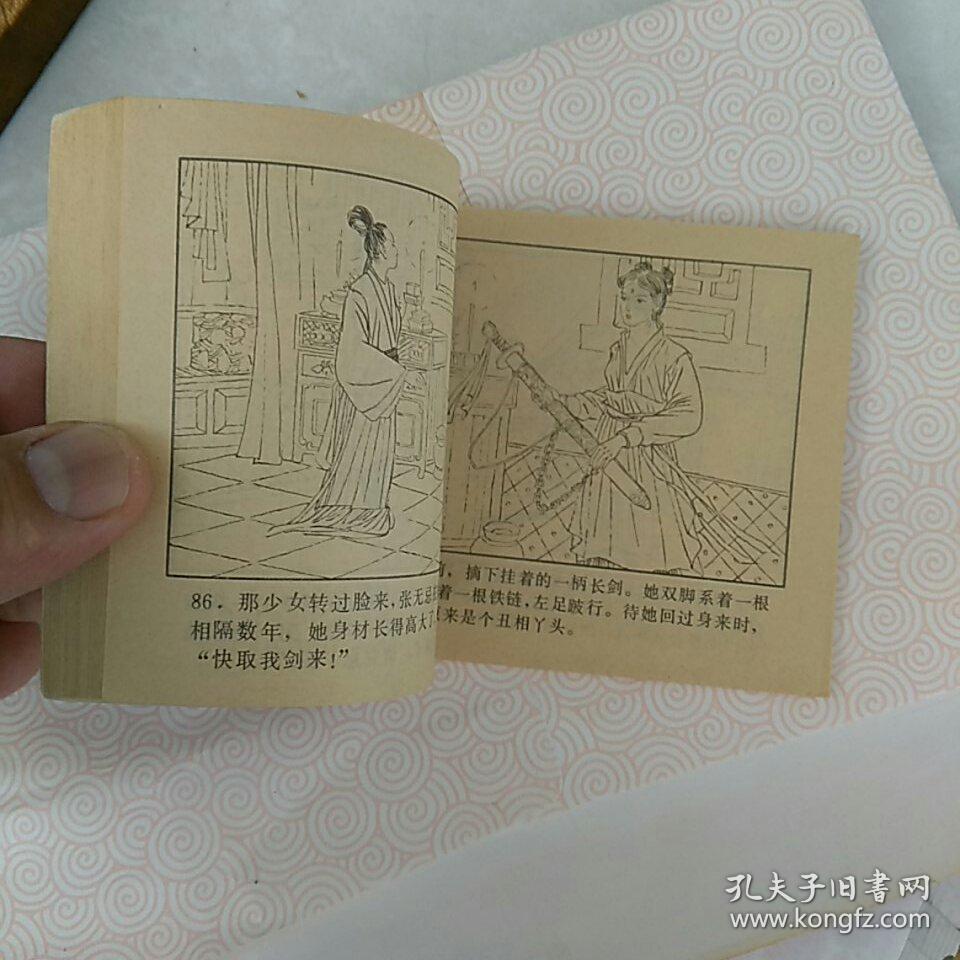 86．那少女转过脸来，张无忌
相隔数年，她身材长得高大了
“快取我剑来！”
，摘下挂着的一柄长剑。她双脚系着一根
着一根铁链，左足跛行。待她回过身来时，
来是个丑相丫头。
孔夫子旧书网
www.kongfz.com